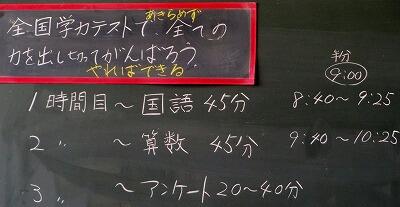 あきらめず
全国学力テストで、全ての
力を出しきってがんばろう。
やればできる
半分
9:00
1時間目～国語 45分 8:40～9:25
2 〃 ～算数 45分 9:40～10:25
3 〃 ～アンケート20～40分